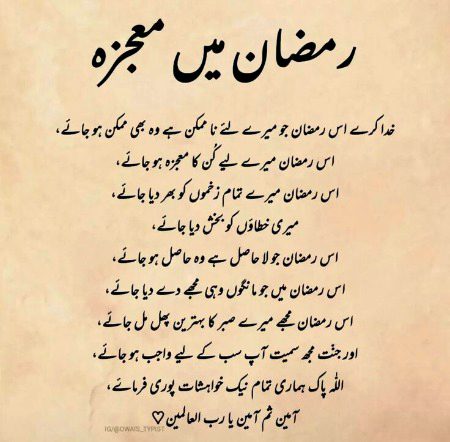 رمضان میں معجزہ
خدا کرے اس رمضان جو میرے لئے نا ممکن ہے وہ بھی ممکن ہو جائے،
اس رمضان میرے لیے کُن کا معجزہ ہو جائے،
اس رمضان میرے تمام زخموں کو بھر دیا جائے،
میری خطاؤں کو بخش دیا جائے،
اس رمضان جو لا حاصل ہے وہ حاصل ہو جائے،
اس رمضان میں جو مانگوں وہی مجھے دے دیا جائے،
اس رمضان مجھے میرے صبر کا بہترین پھل مل جائے،
اور جنّت مجھ سمیت آپ سب کے لیے واجب ہو جائے،
اللہ پاک ہماری تمام نیک خواہشات پوری فرمائے،
آمین ثم آمین یا رب العالمین♡
IG/@OWAIS_TYPIST